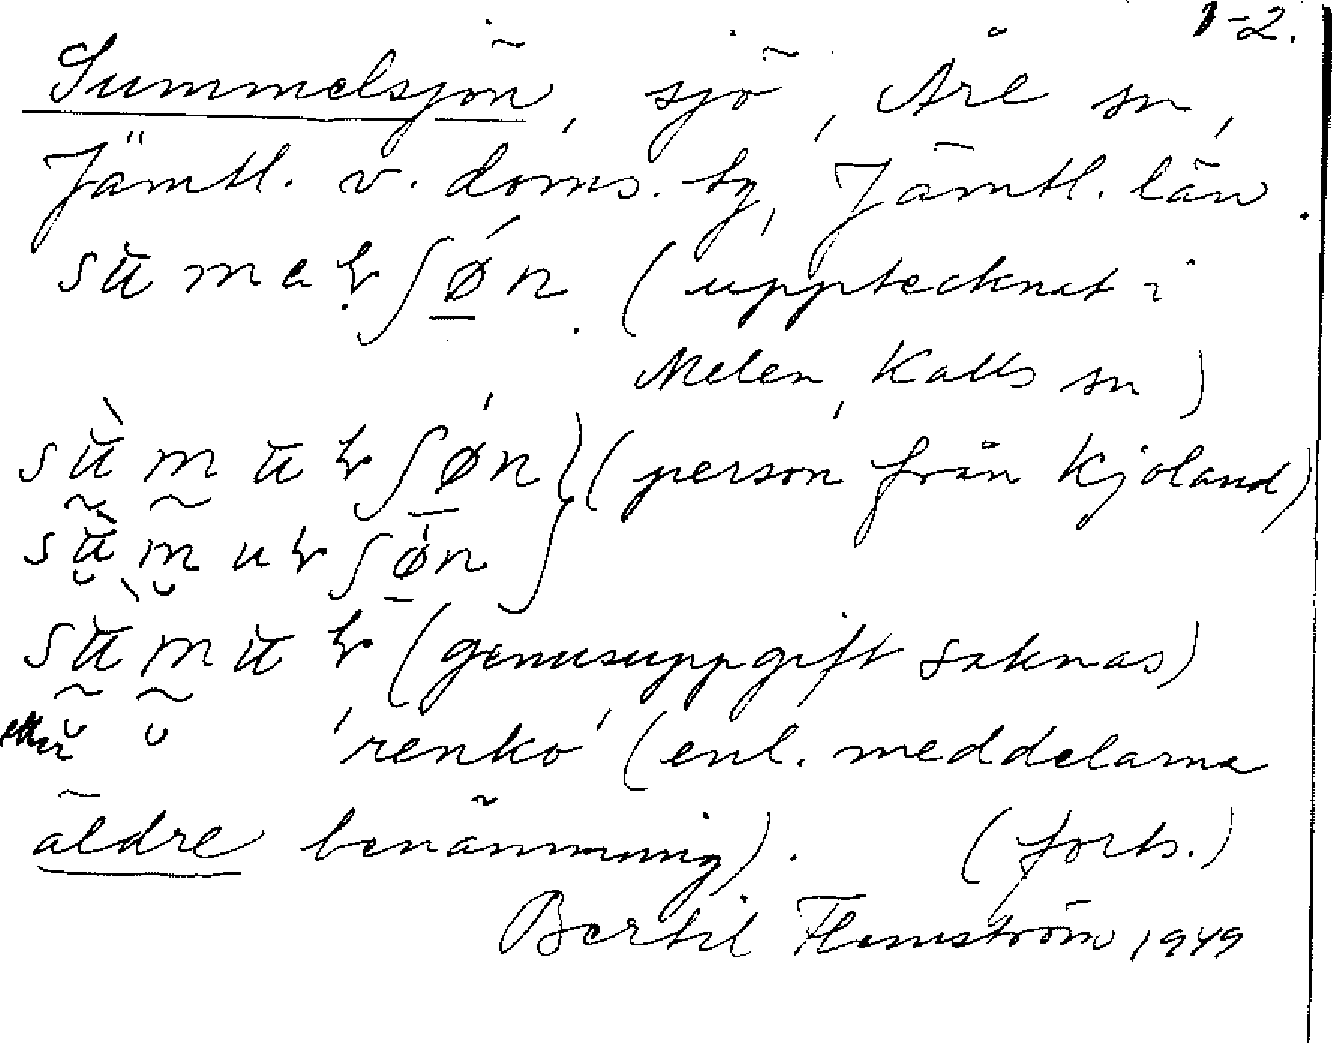 1-2.
Summelsjön, sjö, Åre sn,
Jämtl. v. doms. tg, Jämtl. län.
(upptecknat i
Melen, Kalls sn)
(person från Kjoland)
(genusuppgift saknas)
eller 'renko' (enl. meddelarna
äldre benämning). (forts.)
Bertil Flemström 1949